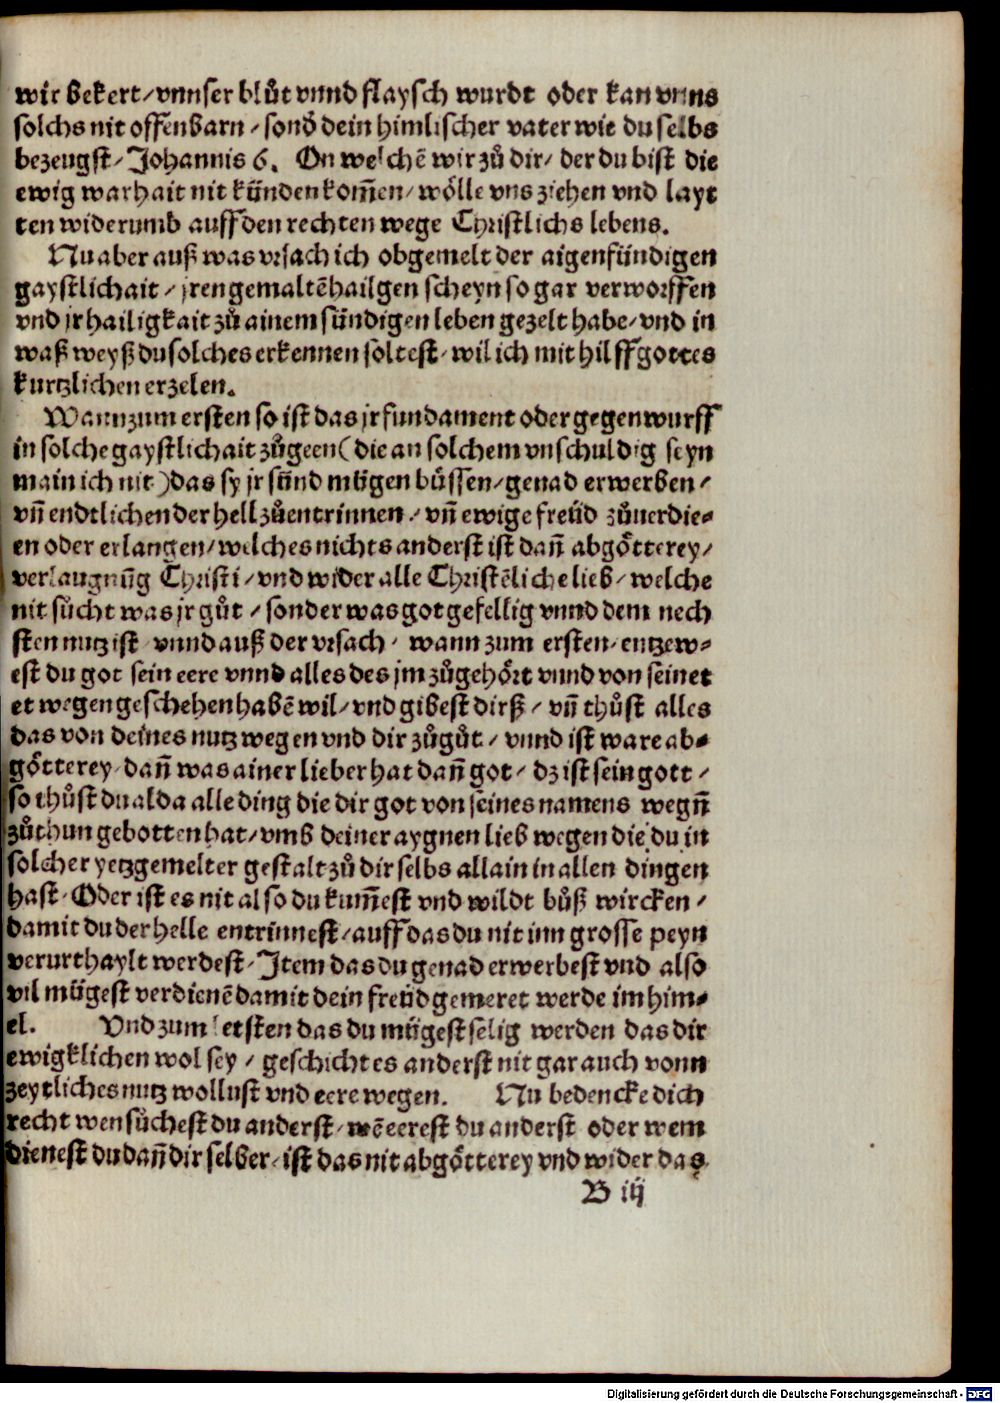 wir bekert/vnnser blůt vnnd flaysch wurdt oder kan vnns
solchs nit offenbarn/sonď dein himlischer vater wie du selbs
bezeugst/Johannis 6. On welchē wir zů dir/der du bist die
ewig warhait nit künden kom̄en/wölle vns ziehen vnd layt
ten widerumb auff den rechten wege Christlichs lebens.
Nu aber auß was vrsach ich obgemelt der aigenfündigen
gaystlichait/jren gemaltē hailgen scheyn so gar verworffen
vnd jr hailigkait zů ainem sündigen leben gezelt habe/vnd in
waß weyß du solches erkennen soltest/wil ich mit hilff gottes
kurtzlichen erzelen.
Wann zum ersten so ist das jr fundament oder gegenwurff
in solche gaystlichait zůgeen(die an solchem vnschuldig seyn
main ich nit)das sy jr sünd mügen büssen/genad erwerben/
vn̄ endtlichen der hell zůentrinnen/vn̄ ewige freüd zůuerdie-
en oder erlangen/welches nichts anderst ist dan̄ abgötterey/
verlaugnūg Christi/vnd wider alle Christēliche lieb/welche
nit sůcht was jr gůt/sonder was got gefellig vnnd dem nech
sten nutz ist vnnd auß der vrsach/wann zum ersten/entzew-
est du got sein eere vnnd alles des jm zůgehört vnnd von seinet
et wegen geschehen habē wil/vnd gibest dirß/vn̄ thůst alles
das von deines nutz wegen vnd dir zůgůt/vnnd ist ware ab-
götterey/dan̄ was ainer lieber hat dan̄ got/dz ist sein gott/
so thůst du alda alle ding die dir got von seines namens wegn̄
zůthun gebotten hat/vmb deiner aygnen lieb wegen die du in
solcher yetzgemelter gestalt zů dir selbs allain in allen dingen
hast/Oder ist es nit also du kum̄est vnd wildt bůß wircken/
damit du der helle entrinnest/auff das du nit inn grosse peyn
verurthaylt werdest/Item das du genad erwerbest vnd also
vil mügest verdienē damit dein freüd gemeret werde im him-
el. Vnd zum letsten das du mügest selig werden das dir
ewigklichen wol sey/geschicht es anderst nit gar auch vonn
zeytliches nutz wollust vnd eere wegen. Nu bedencke dich
recht wen sůchest du anderst/wē eerest du anderst oder wem
dienest du dan̄ dir selber/ist das nit abgötterey vnd wider das
B iij
Digitalisierung gefördert durch die Deutsche Forschungsgemeinschaft - DFG